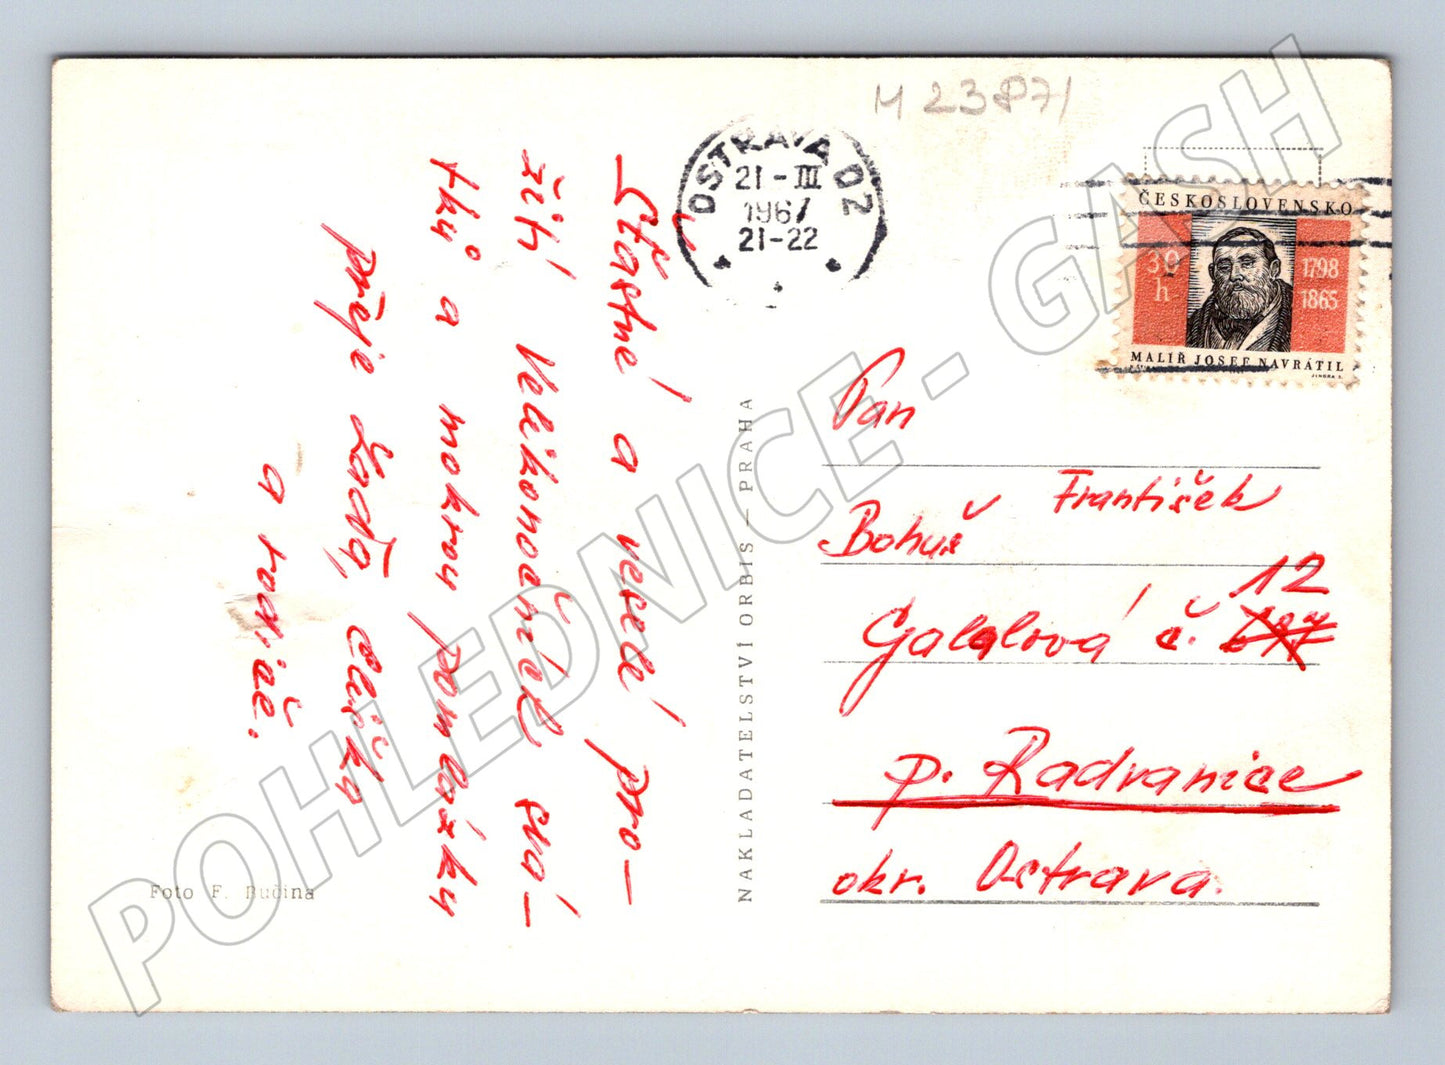 M 23871
OSTRAVA 02
21-III
1967
21-22
ČESKOSLOVENSKO
30
h
1798
1865
MALÍŘ JOSEF NAVRÁTIL
JINDRA S.
Šťastné a veselé pro-
žití Velikonočních svá-
tků a mokrou pomlázku
přeje Laďa, Eliška
a rodiče.
Foto F. Bučina
NAKLADATELSTVÍ ORBIS — PRAHA
Pan
František
Bohuš
Galalová č. 12
p. Radvanice
okr. Ostrava.
POHLEDNICE - GASH